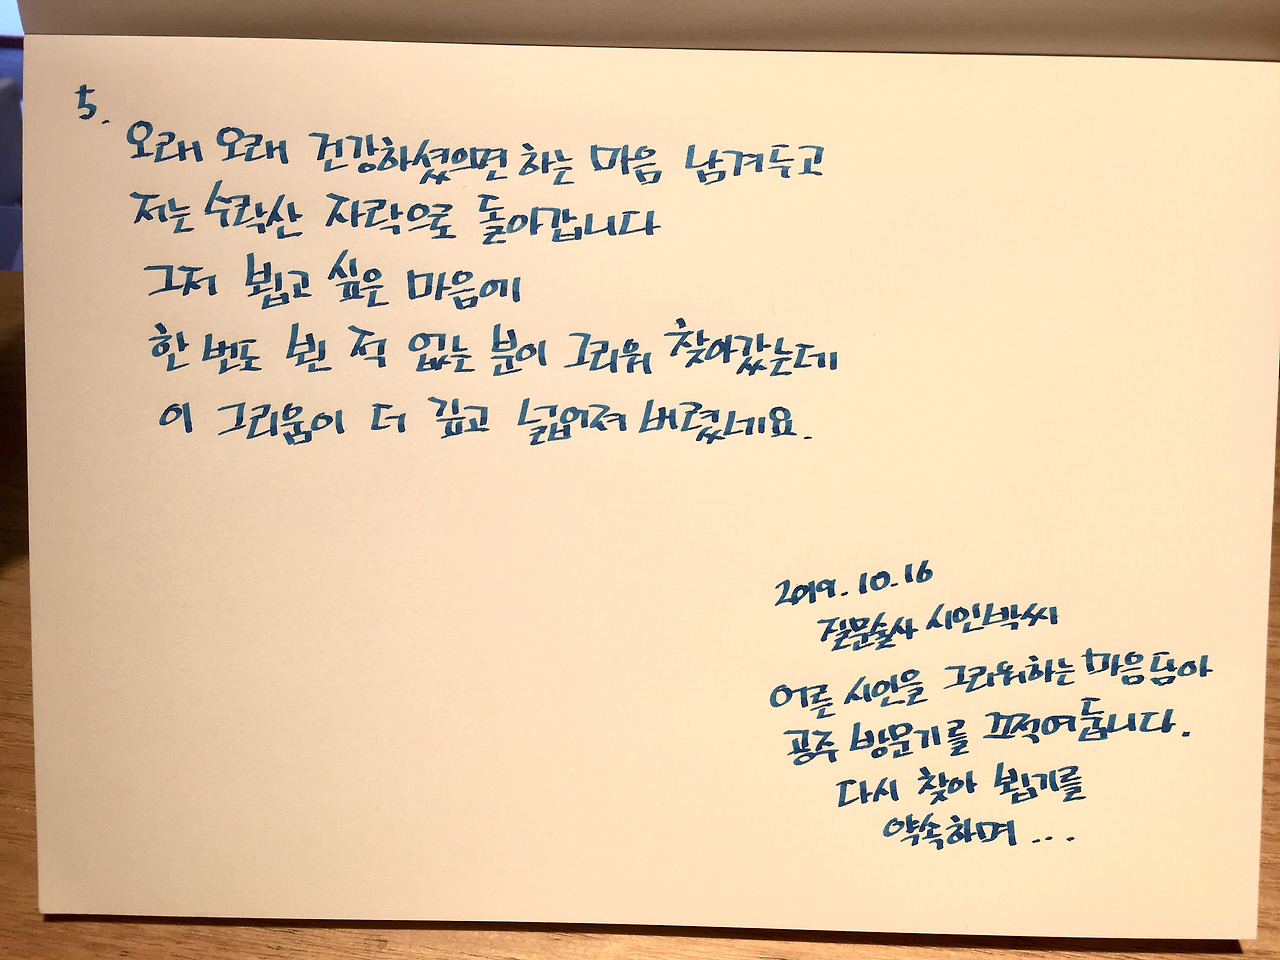 5.
오래 오래 건강하셨으면 하는 마음 남겨두고
저는 수락산 자락으로 돌아갑니다
그저 뵙고 싶은 마음에
한 번도 뵌 적 없는 분이 그리워 찾아갔는데
이 그리움이 더 깊고 넓어져 버렸네요.
2019. 10. 16
질문술사 시인박씨
어른 시인을 그리워하는 마음 담아
공주 방문기를 끄적여둡니다.
다시 찾아 뵙기를
약속하며 ...